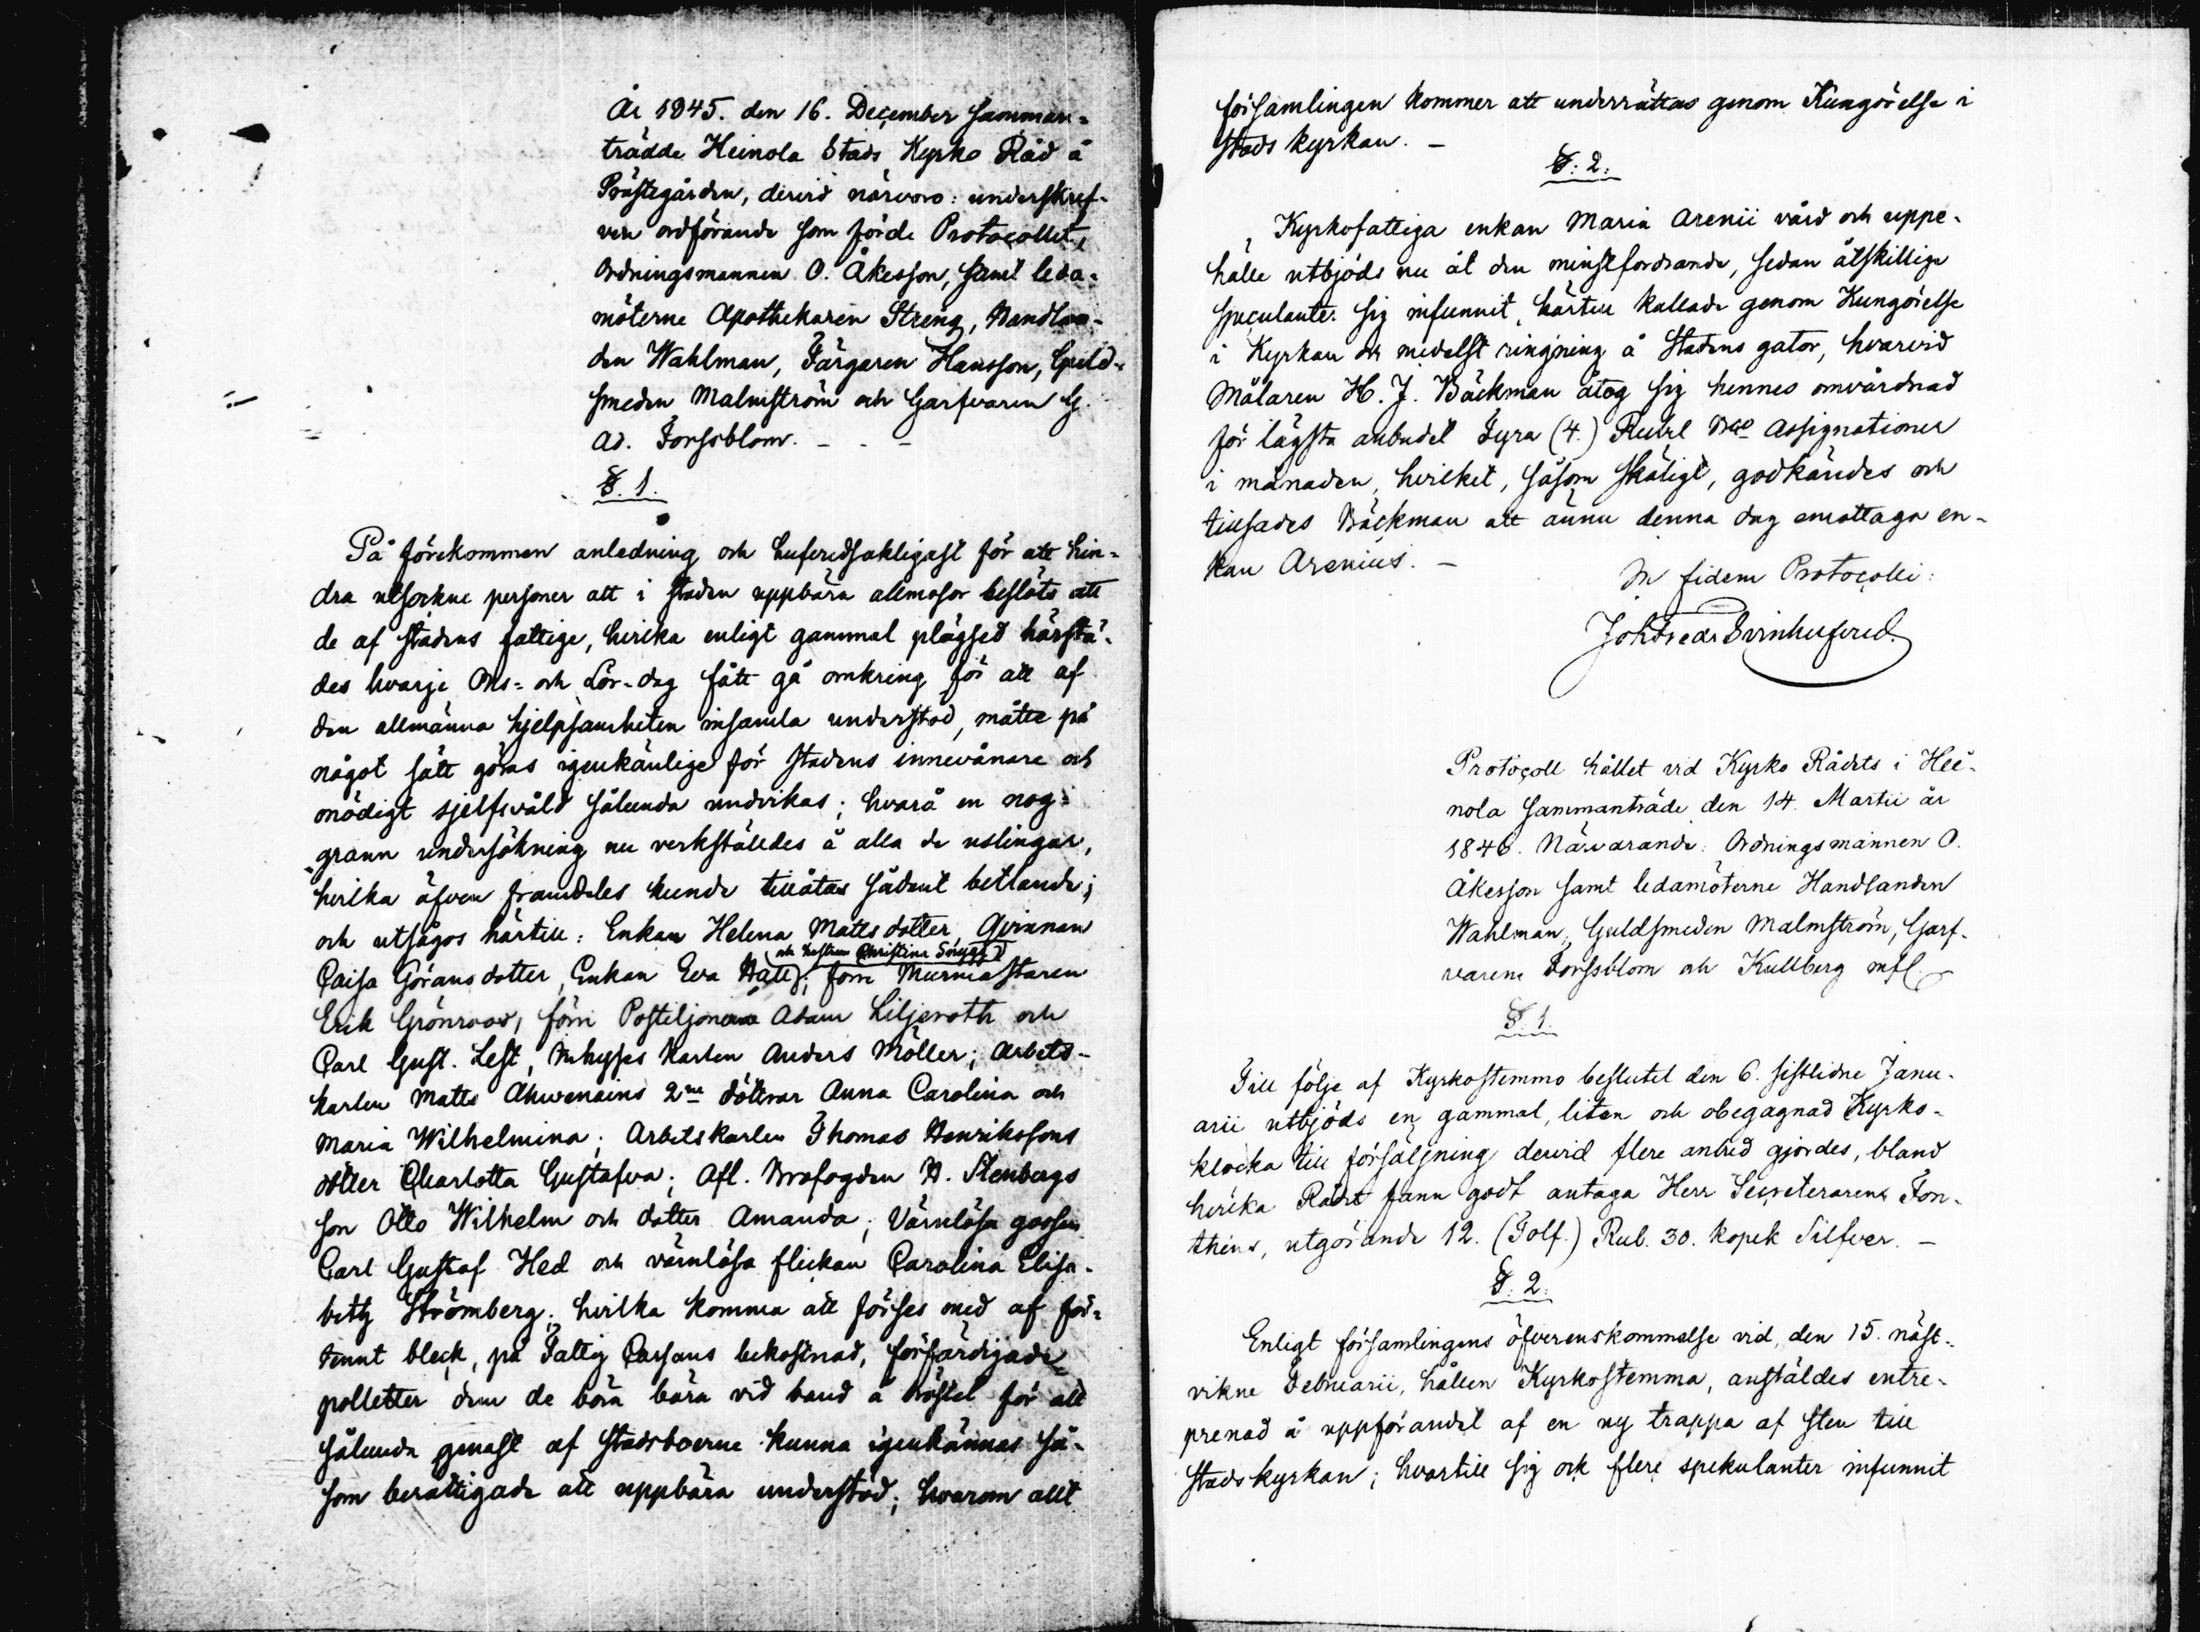 År 1845. den 16. December samman-
trädde Heinola Stads Kyrko Råd å
Prästegården, dervid närvoro: underskref-
ven ordförande som förde Protocollet,
Ordningsmannen O. Åkesson, samt leda-
möterne Apothekaren Streng, Handlan-
den Wahlman, Färgaren Hansson, Guld-
smeden Malmström och Garfvaren G.
Ad. Forssblom. - - -
§. 1.
På förekommen anledning och hufvudsakligast för att hin-
dra utsockne personer att i staden uppbära allmosor beslöts att
de af stadens fattige, hvilka enligt gammal plägsed härstä-
des hvarje Ons- och Lör-dag fått gå omkring för att af
den allmänna hjelpsamheten insamla understöd, måtte på
något sätt göras igenkänlige för stadens innevånare och
onödigt sjelfsvåld sålunda undvikas; hvarå en nog-
grann undersökning nu verkställdes å alla de uslingar,
hvilka äfven framdeles kunde tillåtas sådant betlande;
och utsågos härtill: Enkan Helena Mattsdotter, Qvinnan
och hustrun Christina
Caisa Göransdotter, Enkan Eva Häll; förre Murmästaren
Erik Grönroos, förre Postiljonerne Adam Liljeroth och
Carl Gust. Lest, Inhyses karlen Anders Möller; Arbets-
karlen Matts Ahvenains 2ne döttrar Anna Carolina och
Maria Wilhelmina; Arbetskarlen Thomas Henrikssons
dotter Charlotta Gustafva; Afl. Brofogden H. Stenbergs
son Otto Wilhelm och dotter Amanda; Värnlösa gossen
Carl Gustaf Hed och värnlösa flickan Carolina Elisa-
beth Strömberg; hvilka komma att förses med af för-
tennt bleck, på Fattig Cassans bekostnad, förfärdigade
polletter dem de böra bära vid band å bröstet för att
sålunda genast af Stadsboerne kunna igenkännas så-
som berättigade att uppbära understöd; hvarom allt
församlingen kommer att underrättas genom Kungörelse i
stads kyrkan. -
§. 2.
Kyrkofattiga enkan Maria Arenii vård och uppe-
hälle utbjöds nu åt den minstfordrande, sedan åtskillige
speculanter sig infunnit, härtill kallade genom Kungörelse
i Kyrkan och medelst ringning å Stadens gator, hvarvid
Målaren H. J. Bäckman åtog sig hennes omvårdnad
för lägsta anbudet Fyra (4.) Rubel Bco Assignationer
i månaden, hvilket, såsom skäligt, godkändes och
tillsades Bäckman att ännu denna dag emottaga en-
kan Arenius. -
In fidem Protocolli:
Joh Fredr Svinhufvud
Protocoll hållet vid Kyrko Rådets i Hei-
nola sammanträde den 14. Martii år
1846. Närvarande: Ordningsmannen O.
Åkesson samt ledamöterne Handlanden
Wahlman, Guldsmeden Malmström, Garf-
varene Forssblom och Kullberg mfl
§. 1.
Till följe af Kyrkostemmo beslutet den 6. sistlidne Janu-
arii utbjöds en gammal, liten och obegagnad Kyrko-
klocka till försäljning dervid flere anbud gjordes, bland
hvilka Rådet fann godt antaga Herr Secreteraren Fon-
theins, utgörande 12. (Tolf.) Rub. 30. kopek Silfver. -
§. 2.
Enligt församlingens öfverenskommelse vid, den 15. näst-
vikne Februarii, hållen Kyrkostemma, anställdes entre-
prenad å uppförandet af en ny trappa af sten till
stadskyrkan; hvartill sig ock flere spekulanter infunnit